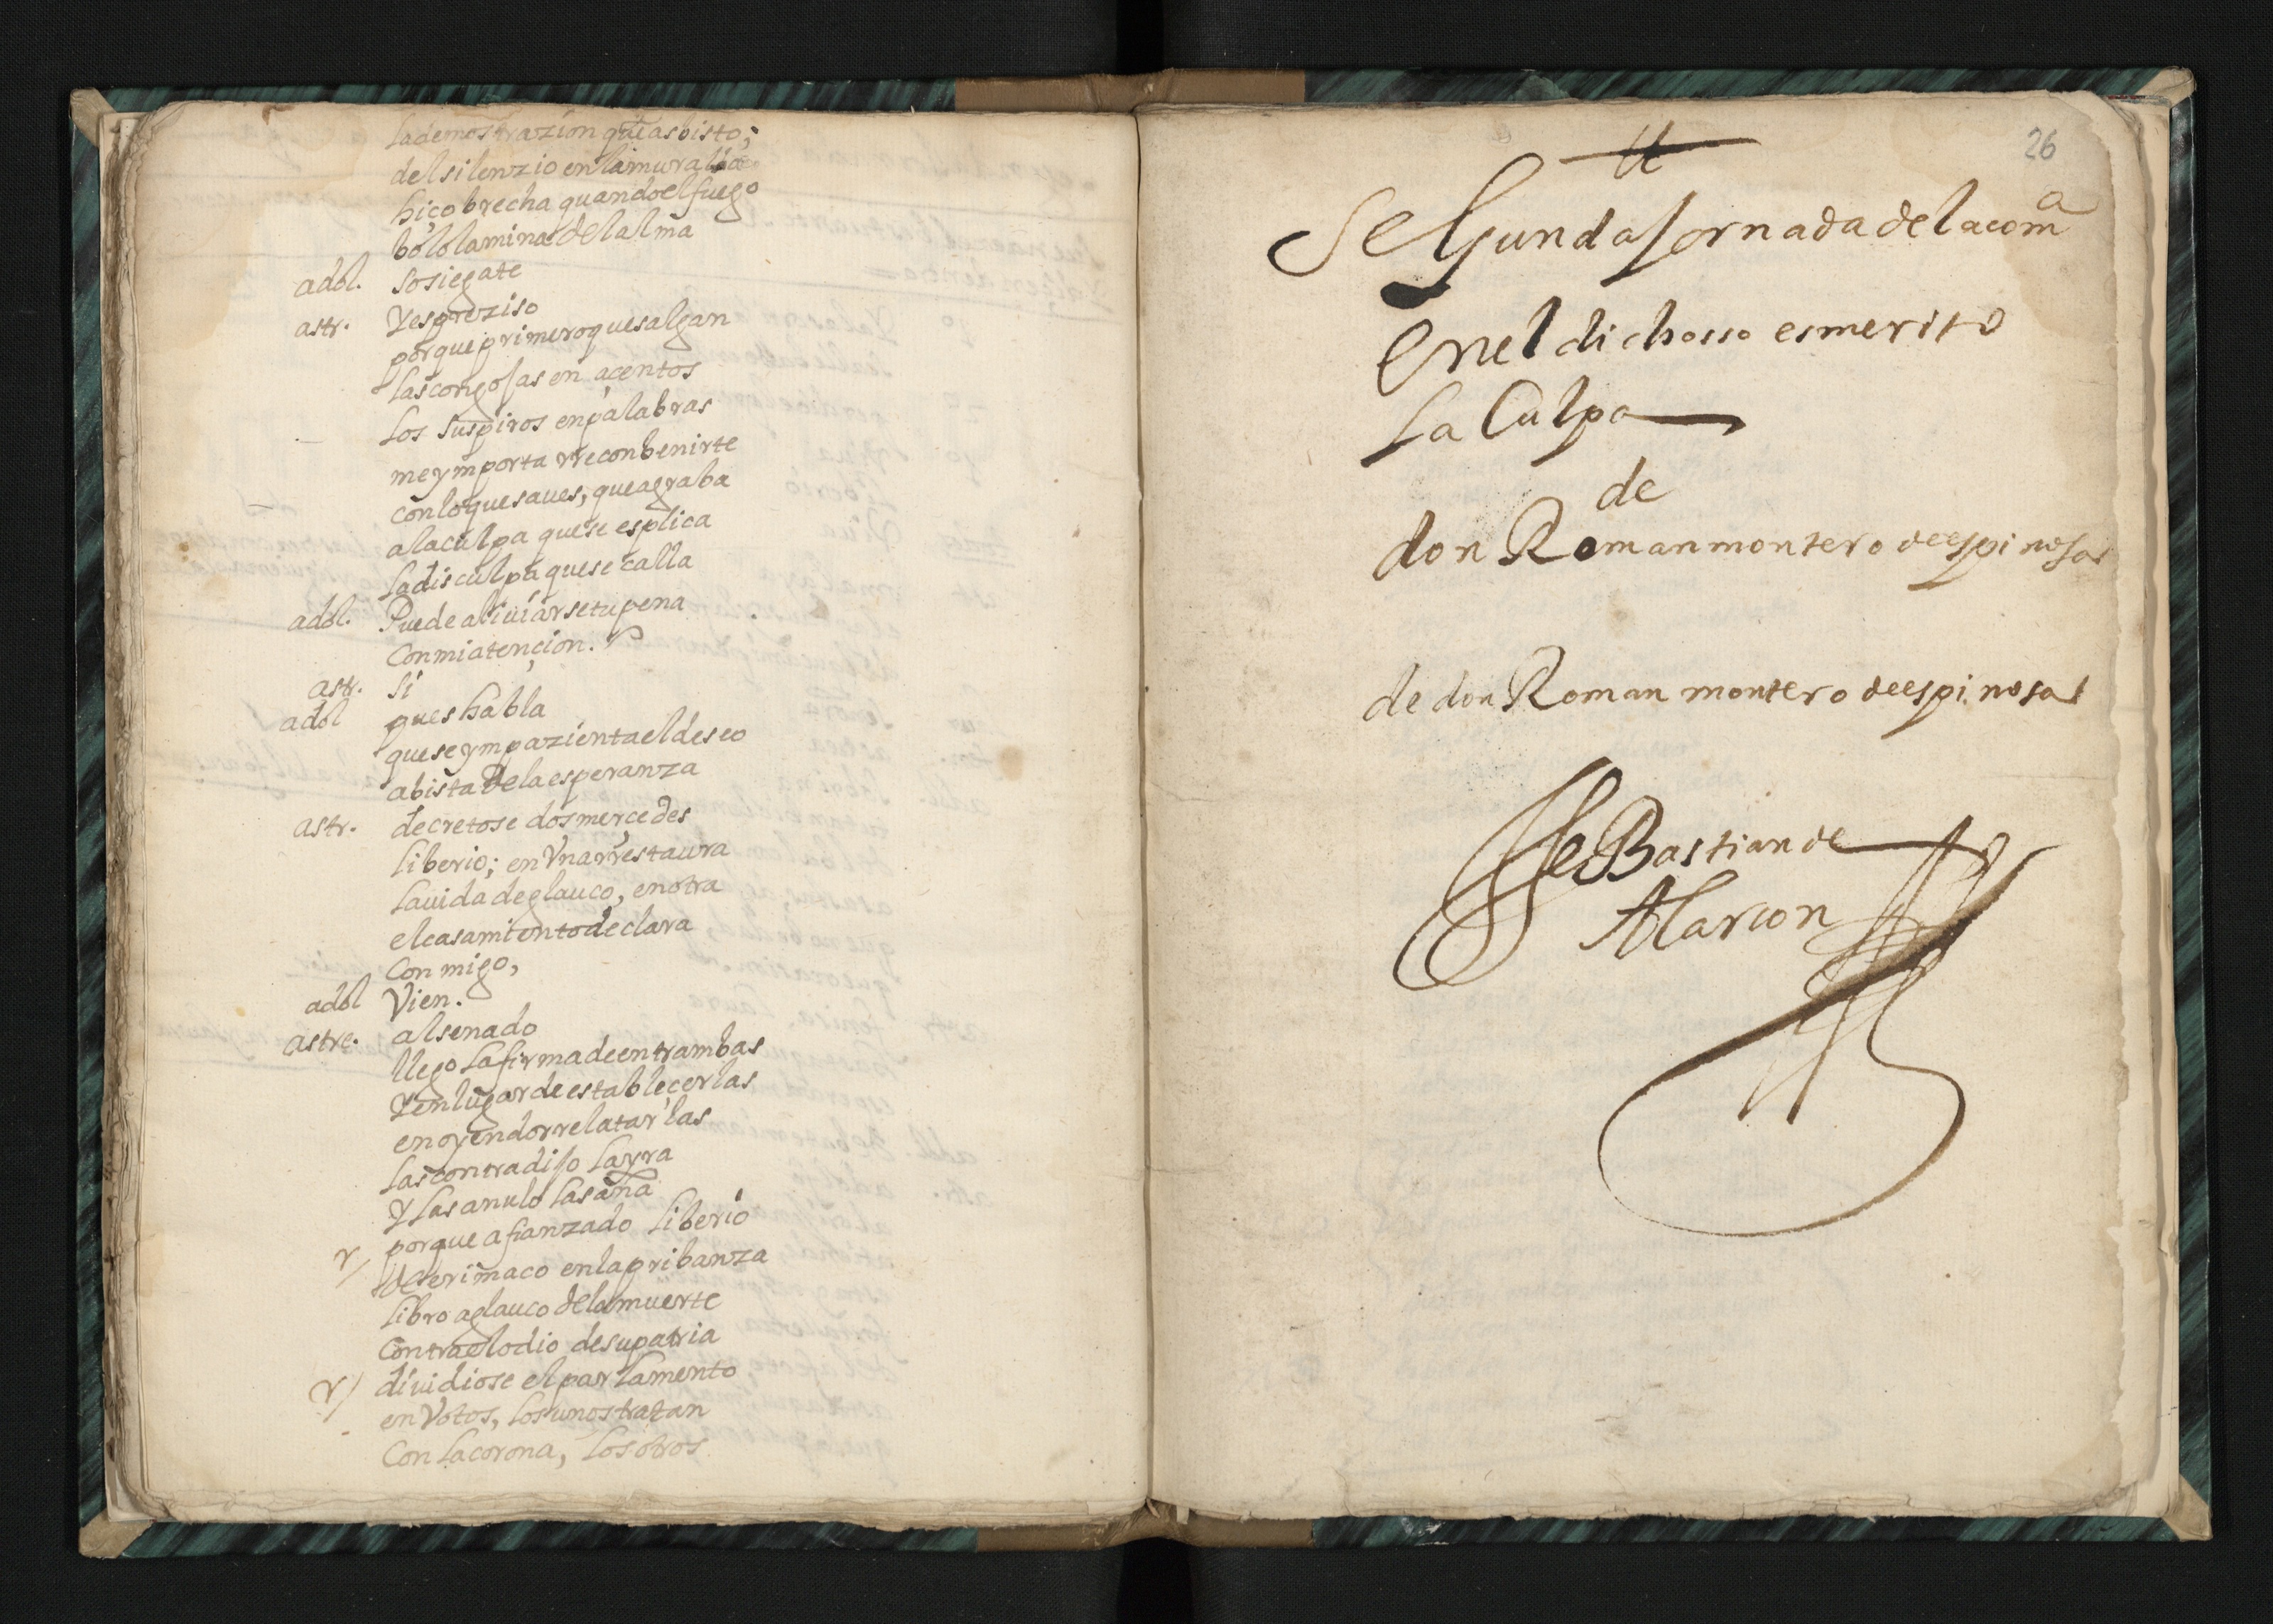 la demostrazion que as bisto;
del silenzio en la muralla
hiço brecha quando el fuego
boló la mina del alma
adol. sosiegate
astr. Y es preziso
porque primero que salgan
las congojas en açentos
los suspiros en palabras
me ymporta rreconbenirte
con lo que saues, que agraba
a la culpa que se esplica
la disculpa que se calla
adol. Puede aliuiarse tu pena
Con mi atençion.
astr. si
adol pues habla
que se ympazienta el deseo
a bista de la esperanza
astr. decretose dos merçedes
liberio; en Vna rrestaura
la uida de glauco, en otra
el casamiento de clara
Con migo,
adol Vien.
astre. al senado
llego la firma de entrambas
Y en lugar de estableçerlas
en oyendo rrelatarlas
las contradijo la yra
Y las anulo la saña
porque afianzado liberio
de lerimaco en la pribanza
libro a glauco de la muerte
Contra el odio de su patria
diuidiose el parlamento
en Votos, los unos tratan
Con la corona, los otros
26
Segunda Jornada de la com^a
En el dichosso es merito
La Culpa
de
don Roman montero de espinosa
de don Roman montero de espinosa
SeBastian de
Alarcon